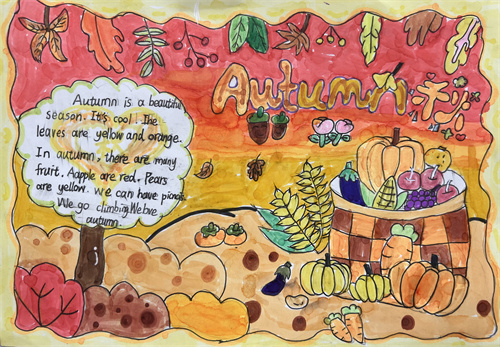 Autumn 秋
Autumn is a beautiful
season. It's cool. The
leaves are yellow and orange.
In autumn, there are many
fruit. Aapple are red. Pears
are yellow. we can have picnic
We go climbing. We love
autumn.